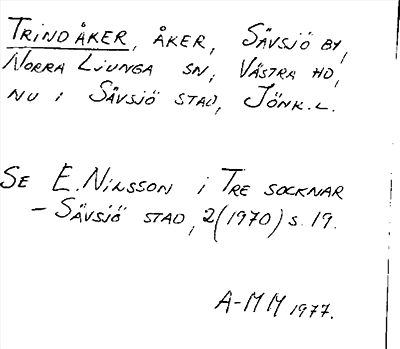 TRINDÅKER, ÅKER, SÄVSJÖ BY,
NORRA LJUNGA SN, VÄSTRA HD,
NU I SÄVSJÖ STAD, JÖNK.L.
SE E. NILSSON i TRE SOCKNAR
– SÄVSJÖ STAD, 2(1970) s. 19.
A-MM 1977.